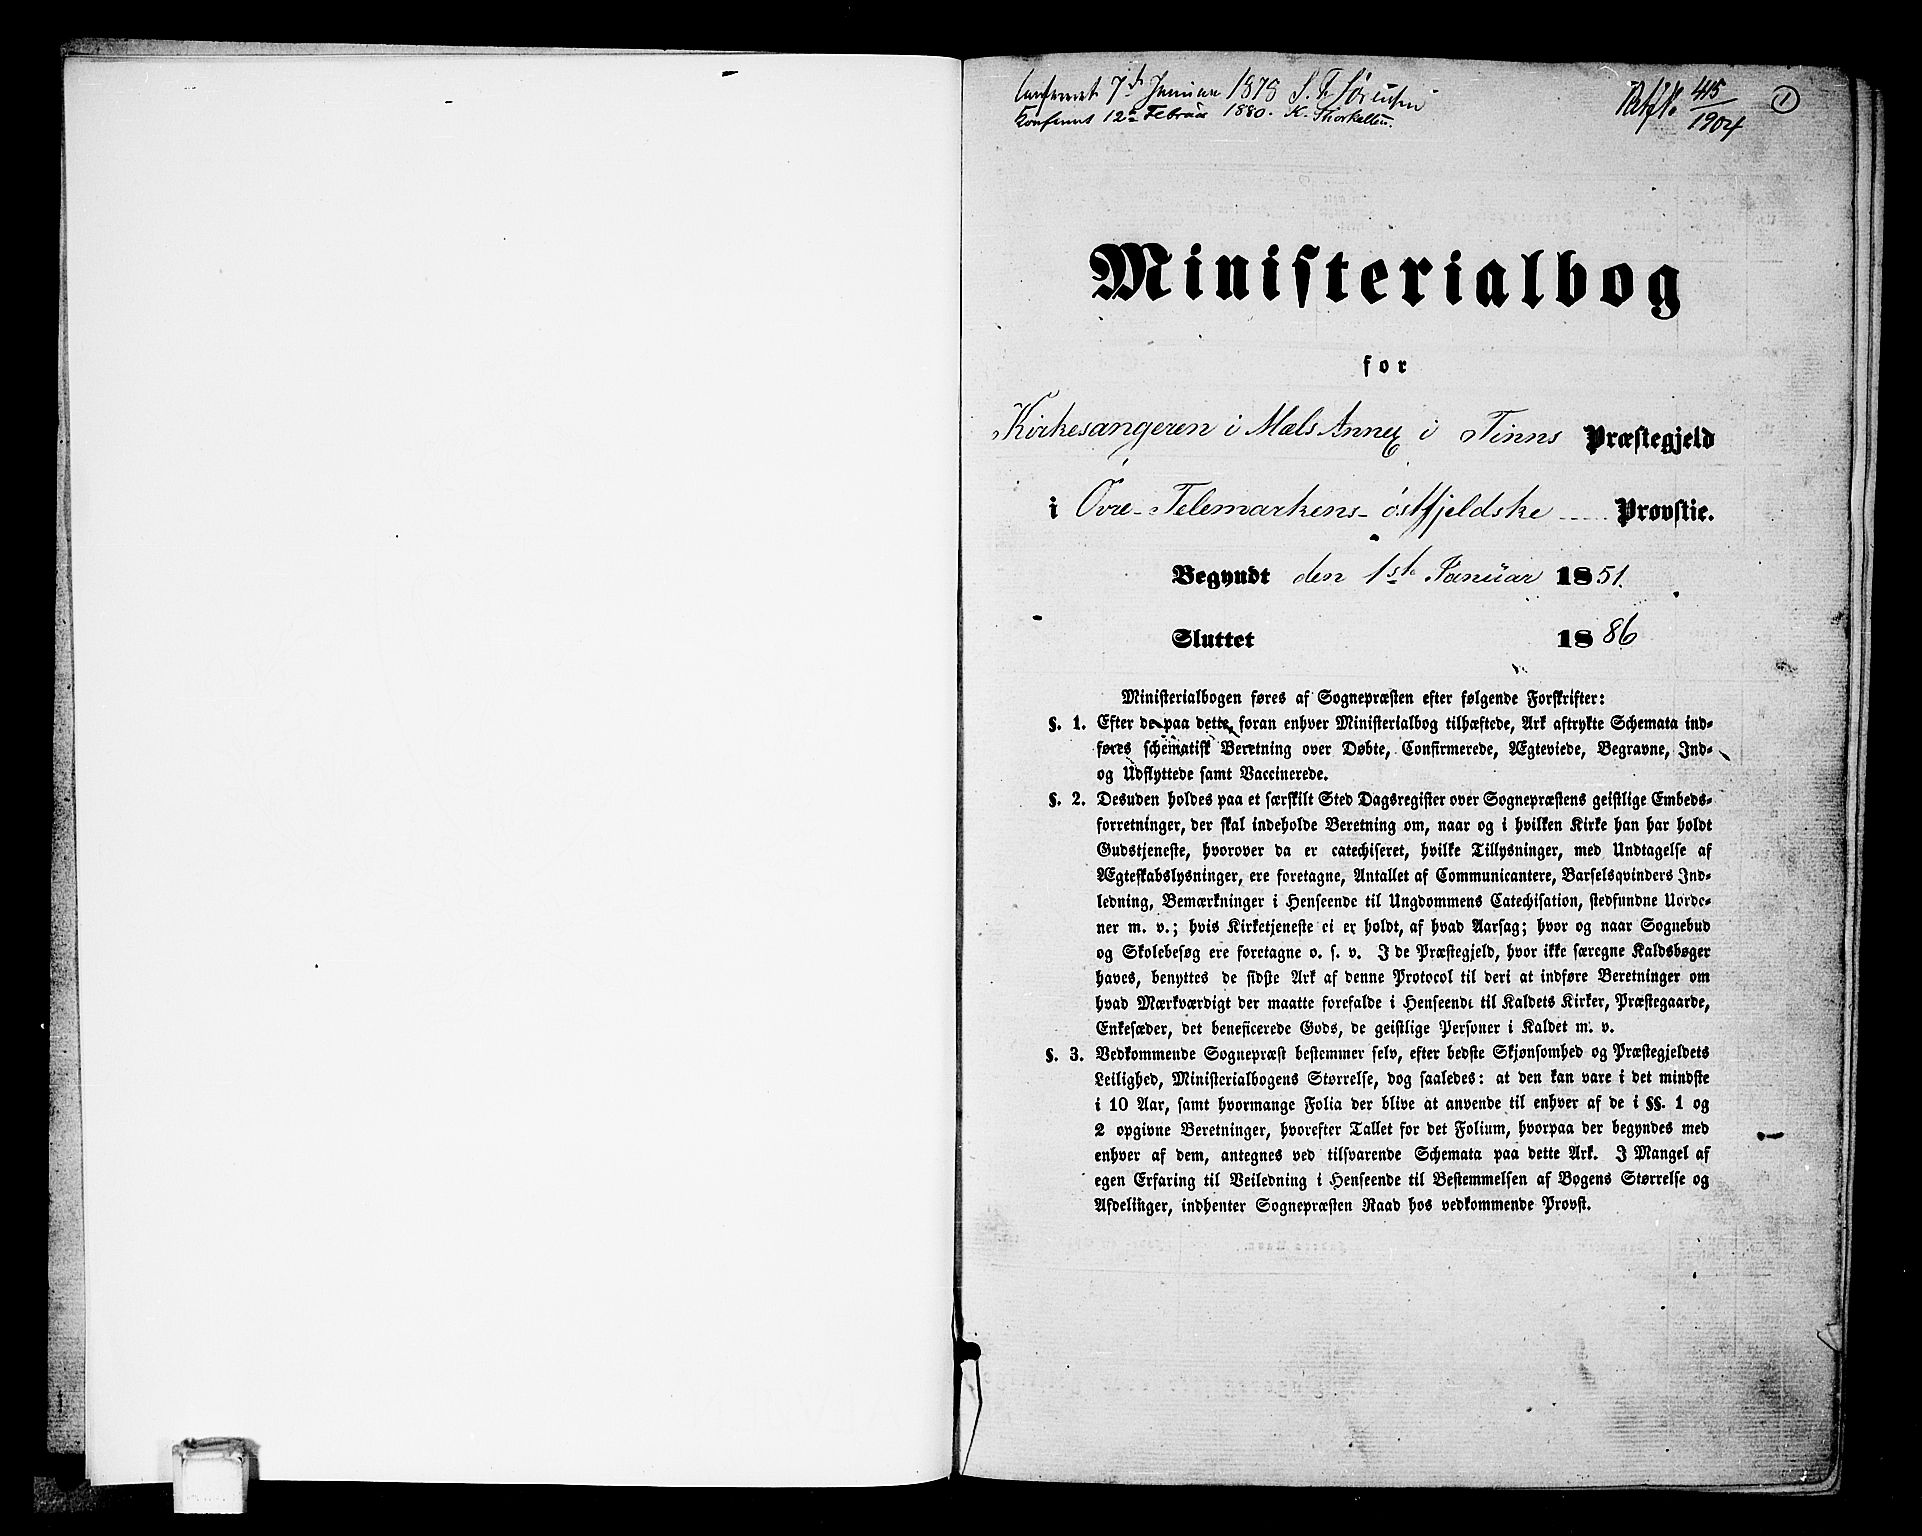 7de Januar 1878 S. T. Sørensen
12te Februar 1880. K. Thorkelsen.
415
1904
1
Ministerialbog
for
Kirkesangeren i Mæls Annex i Tinns Præstegjeld
i Övre-Telemarkens-östfjeldske Provstie.
Begyndt den 1ste Januar 1851.
Sluttet 1886
Ministerialbogen føres af Sognepræsten efter følgende Forskrifter:
§. 1. Efter de paa dette, foran enhver Ministerialbog tilhæftede, Ark aftrykte Schemata ind-
føres schematisk Beretning over Døbte, Confirmerede, Ægteviede, Begravne, Ind-
og Udflyttede samt Vaccinerede.
§. 2. Desuden holdes paa et særskilt Sted Dagsregister over Sognepræstens geistlige Embeds-
forretninger, der skal indeholde Beretning om, naar og i hvilken Kirke han har holdt
Gudstjeneste, hvorover da er catechiseret, hvilke Tillysninger, med Undtagelse af
Ægteskabslysninger, ere foretagne, Antallet af Communicantere, Barselqvinders Ind-
ledning, Bemærkninger i Henseende til Ungdommens Catechisation, stedfundne Uorde-
ner m. v.; hvis Kirketjeneste ei er holdt, af hvad Aarsag; hvor og naar Sognebud
og Skolebesøg ere foretagne o. s. v. I de Præstegjeld, hvor ikke særegne Kaldsbøger
haves, benyttes de sidste Ark af denne Protocol til deri at indføre Beretninger om
hvad Mærkværdigt der maatte forefalde i Henseende til Kaldets Kirker, Præstegaarde,
Enkesæder, det beneficerede Gods, de geistlige Personer i Kaldet m. v.
§. 3. Vedkommende Sognepræst bestemmer selv, efter bedste Skjønsomhed og Præstegjeldets
Leilighed, Ministerialbogens Størrelse, dog saaledes: at den kan vare i det mindste
i 10 Aar, samt hvormange Folia der blive at anvende til enhver af de i §§. 1 og
2 opgivne Beretninger, hvorefter Tallet for det Folium, hvorpaa der begyndes med
enhver af dem, antegnes ved tilsvarende Schemata paa dette Ark. I Mangel af
egen Erfaring til Veiledning i Henseende til Bestemmelsen af Bogens Størrelse og
Afdelinger, indhenter Sognepræsten Raad hos vedkommende Provst.